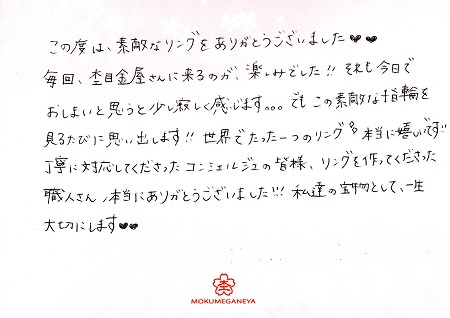 この度は、素敵なリングをありがとうございました♥♥
毎回、杢目金屋さんに来るのが、楽しみでした!! それも今日で
おしまいと思うと少し寂しく感じます。。。でもこの素敵な指輪を
見るたびに思い出します!! 世界でたった一つのリング 本当に嬉いです!!
丁寧に対応してくださったコンシェルジュの皆様、リングを作ってくださった
職人さん、本当にありがとうございました!!! 私達の宝物として、一生
大切にします♥♥
MOKUMEGANEYA